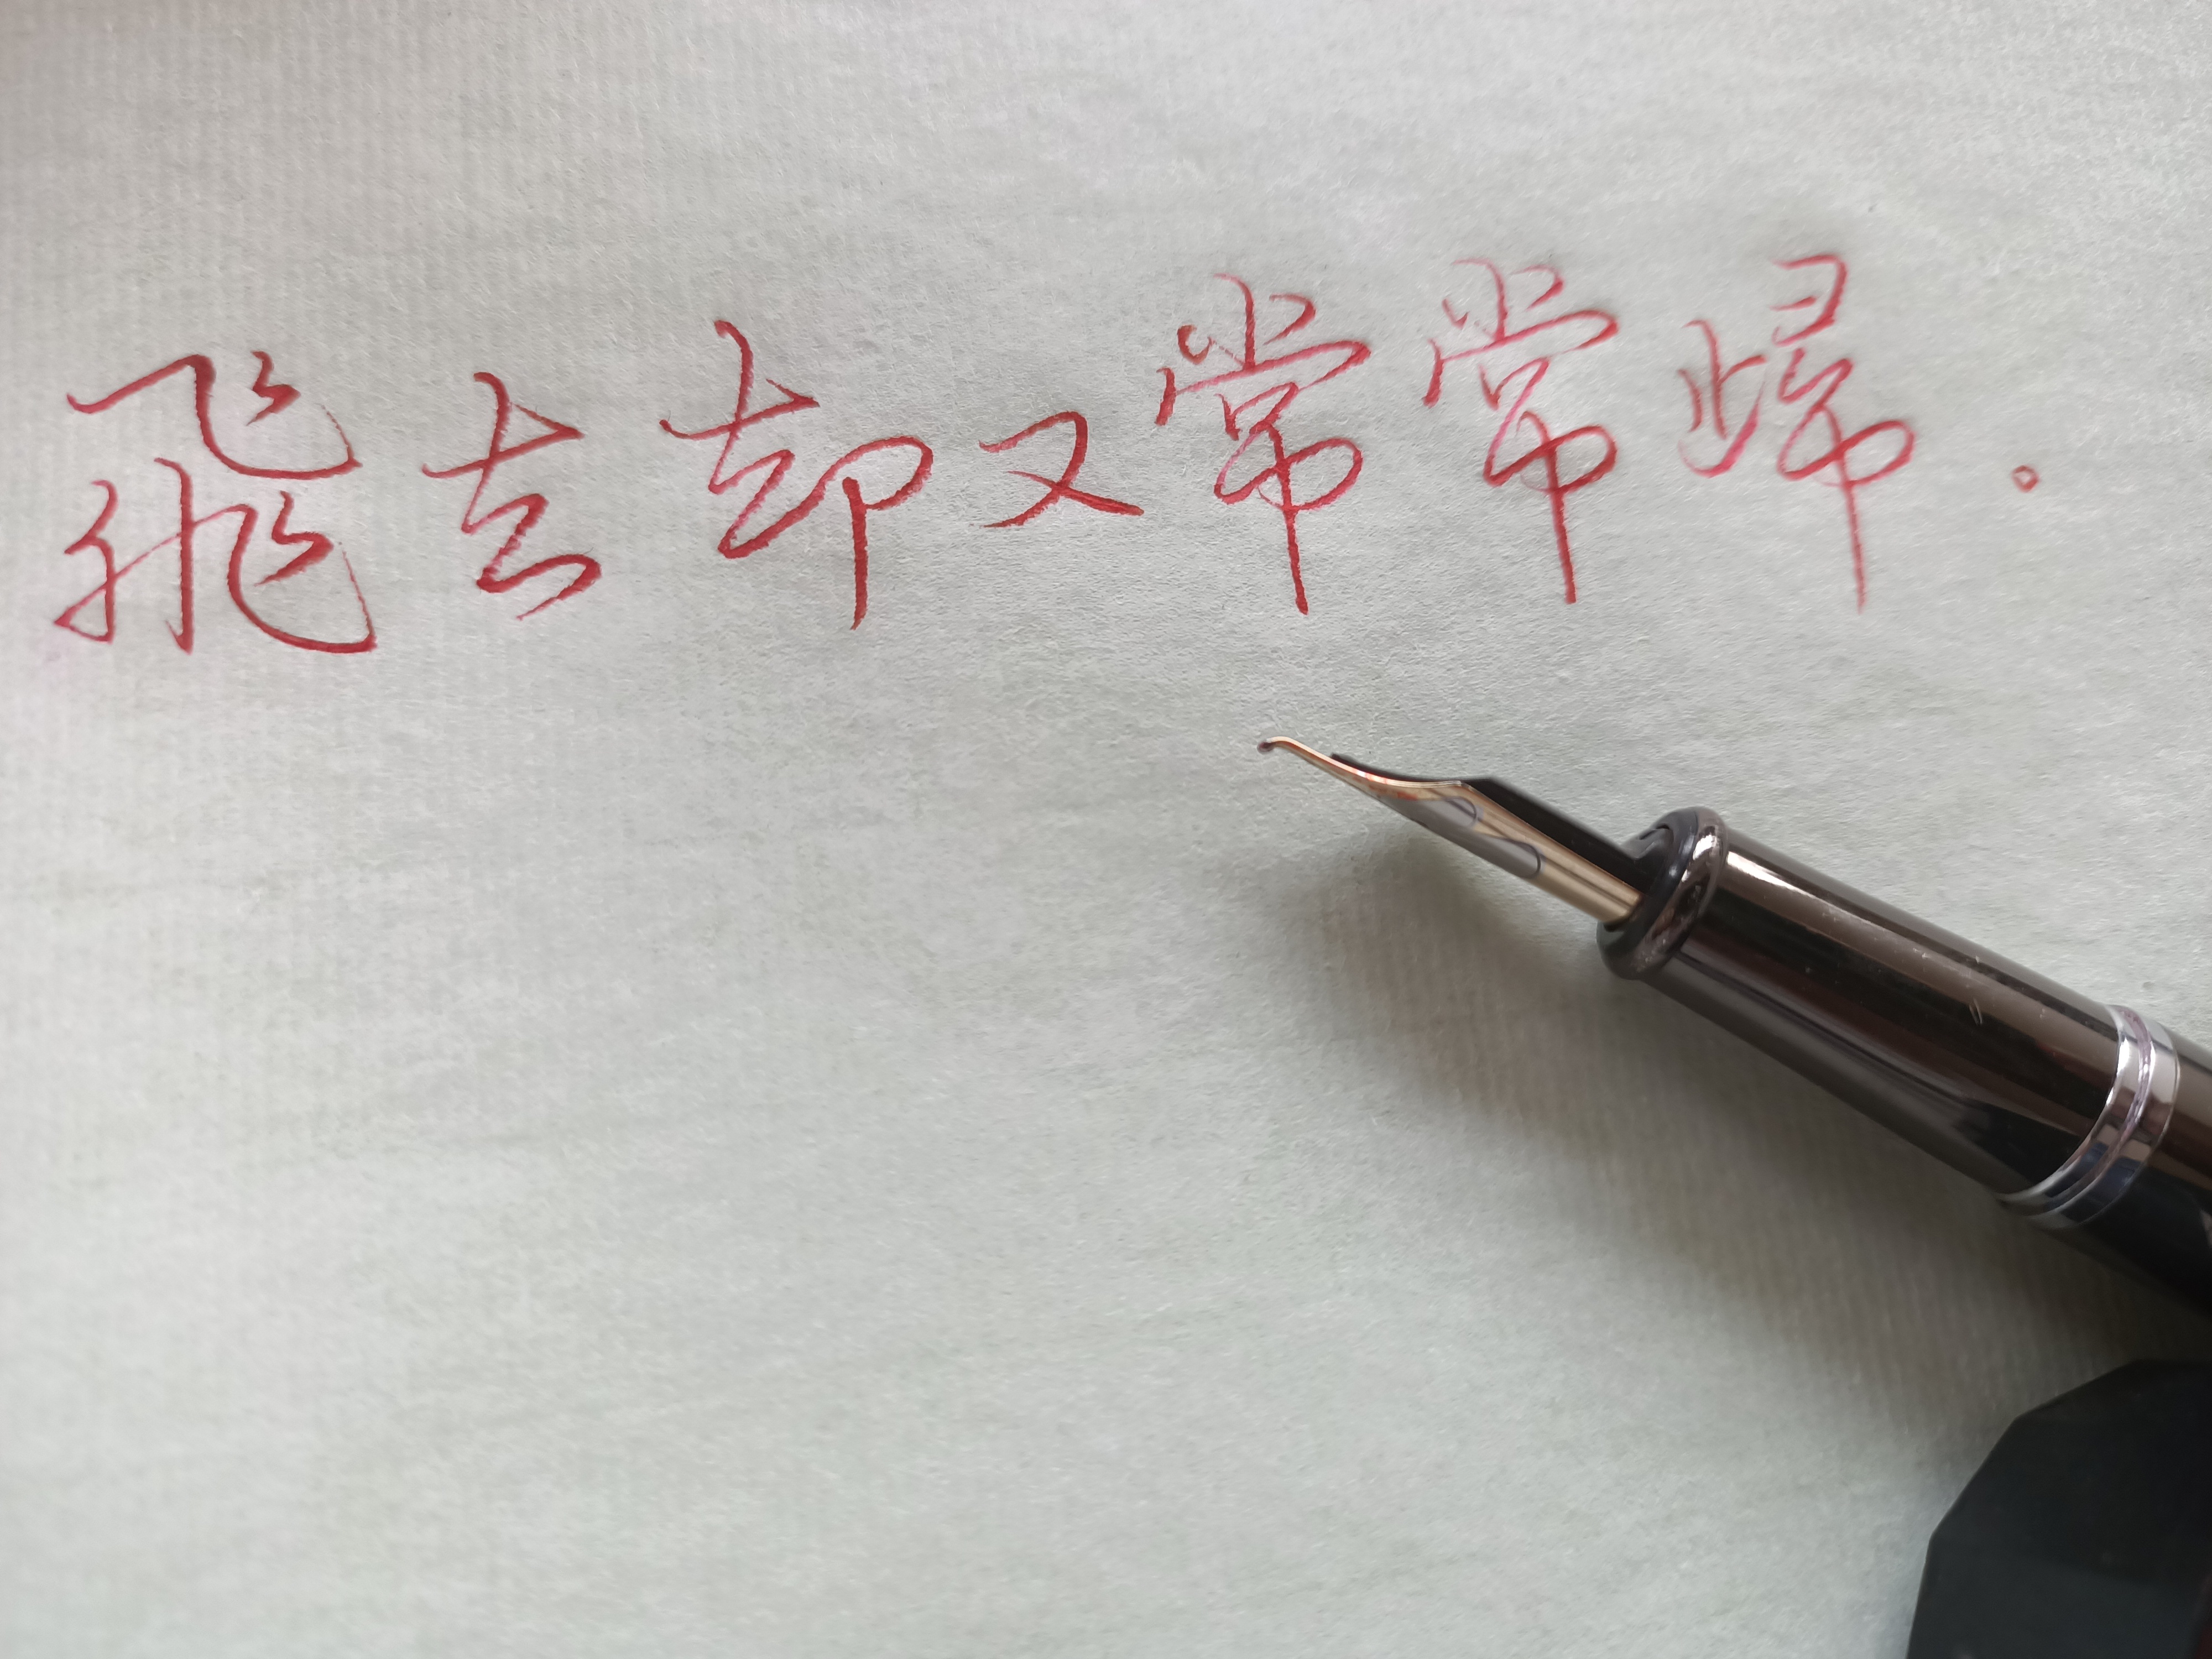 飛去却又常常歸。